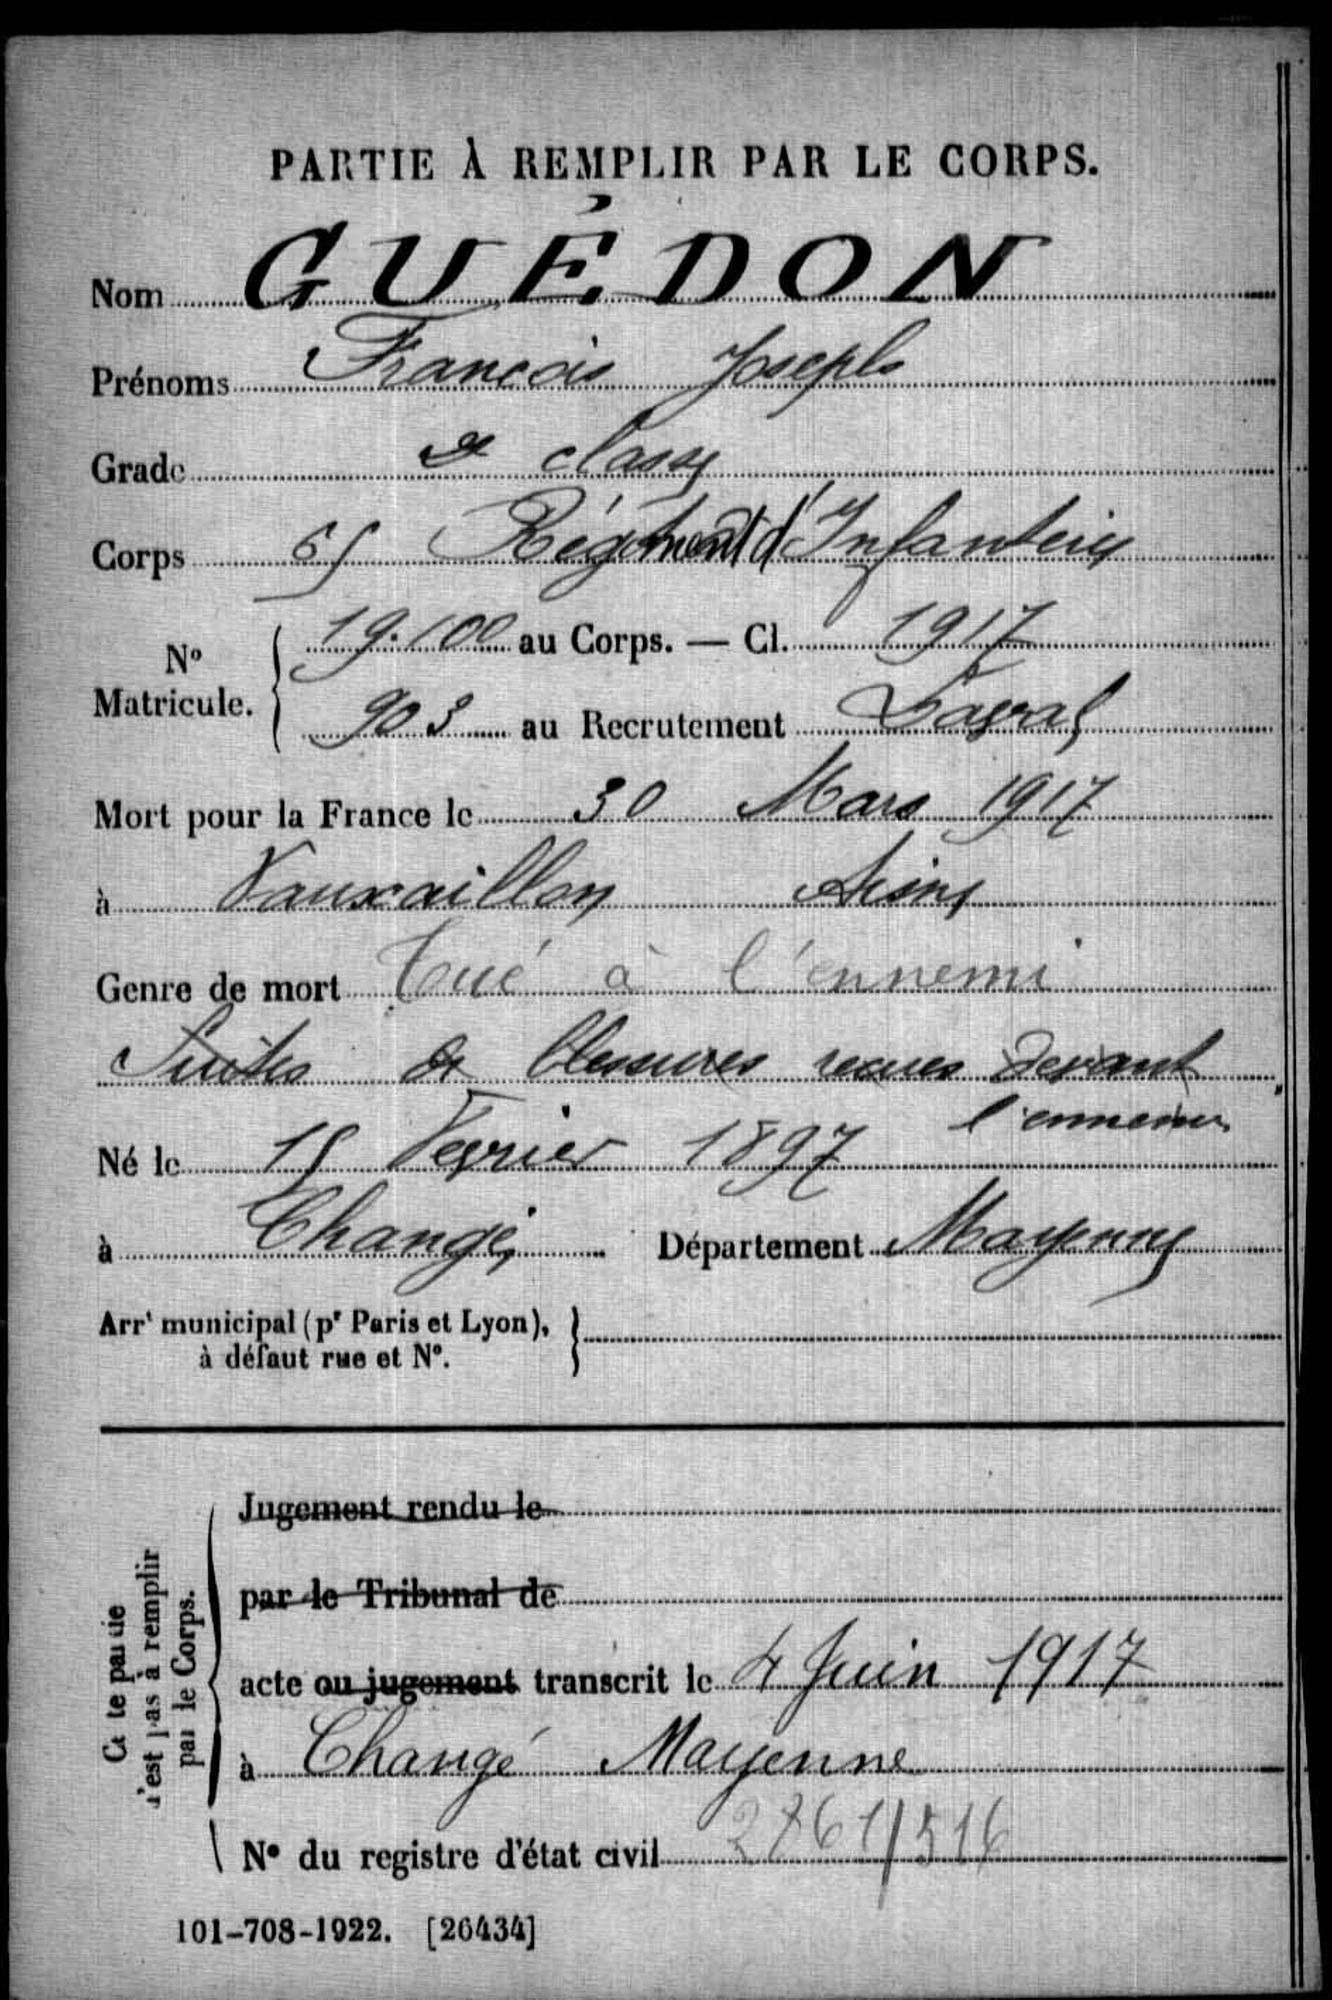 PARTIE À REMPLIR PAR LE CORPS.
Nom GUÉDON
Prénoms François Joseph
Grade 2e classe
Corps 65 Régiment d'Infanterie
N° Matricule. 19.100 au Corps. — Cl. 1917
903 au Recrutement Laval
Mort pour la France le 30 Mars 1917
à Vauxaillon Aisne
Genre de mort Tué à l'ennemi
Suites de blessures recues devant
l'ennemi
Né le 15 Fevrier 1897
à Changé Département Mayenne
Arrt municipal (pr Paris et Lyon),
à défaut rue et N°.
Jugement rendu le
par le Tribunal de
acte ou jugement transcrit le 4 Juin 1917
à Changé Mayenne
N° du registre d'état civil
Cette partie
n'est pas à remplir
par le Corps.
101-708-1922. [26434]